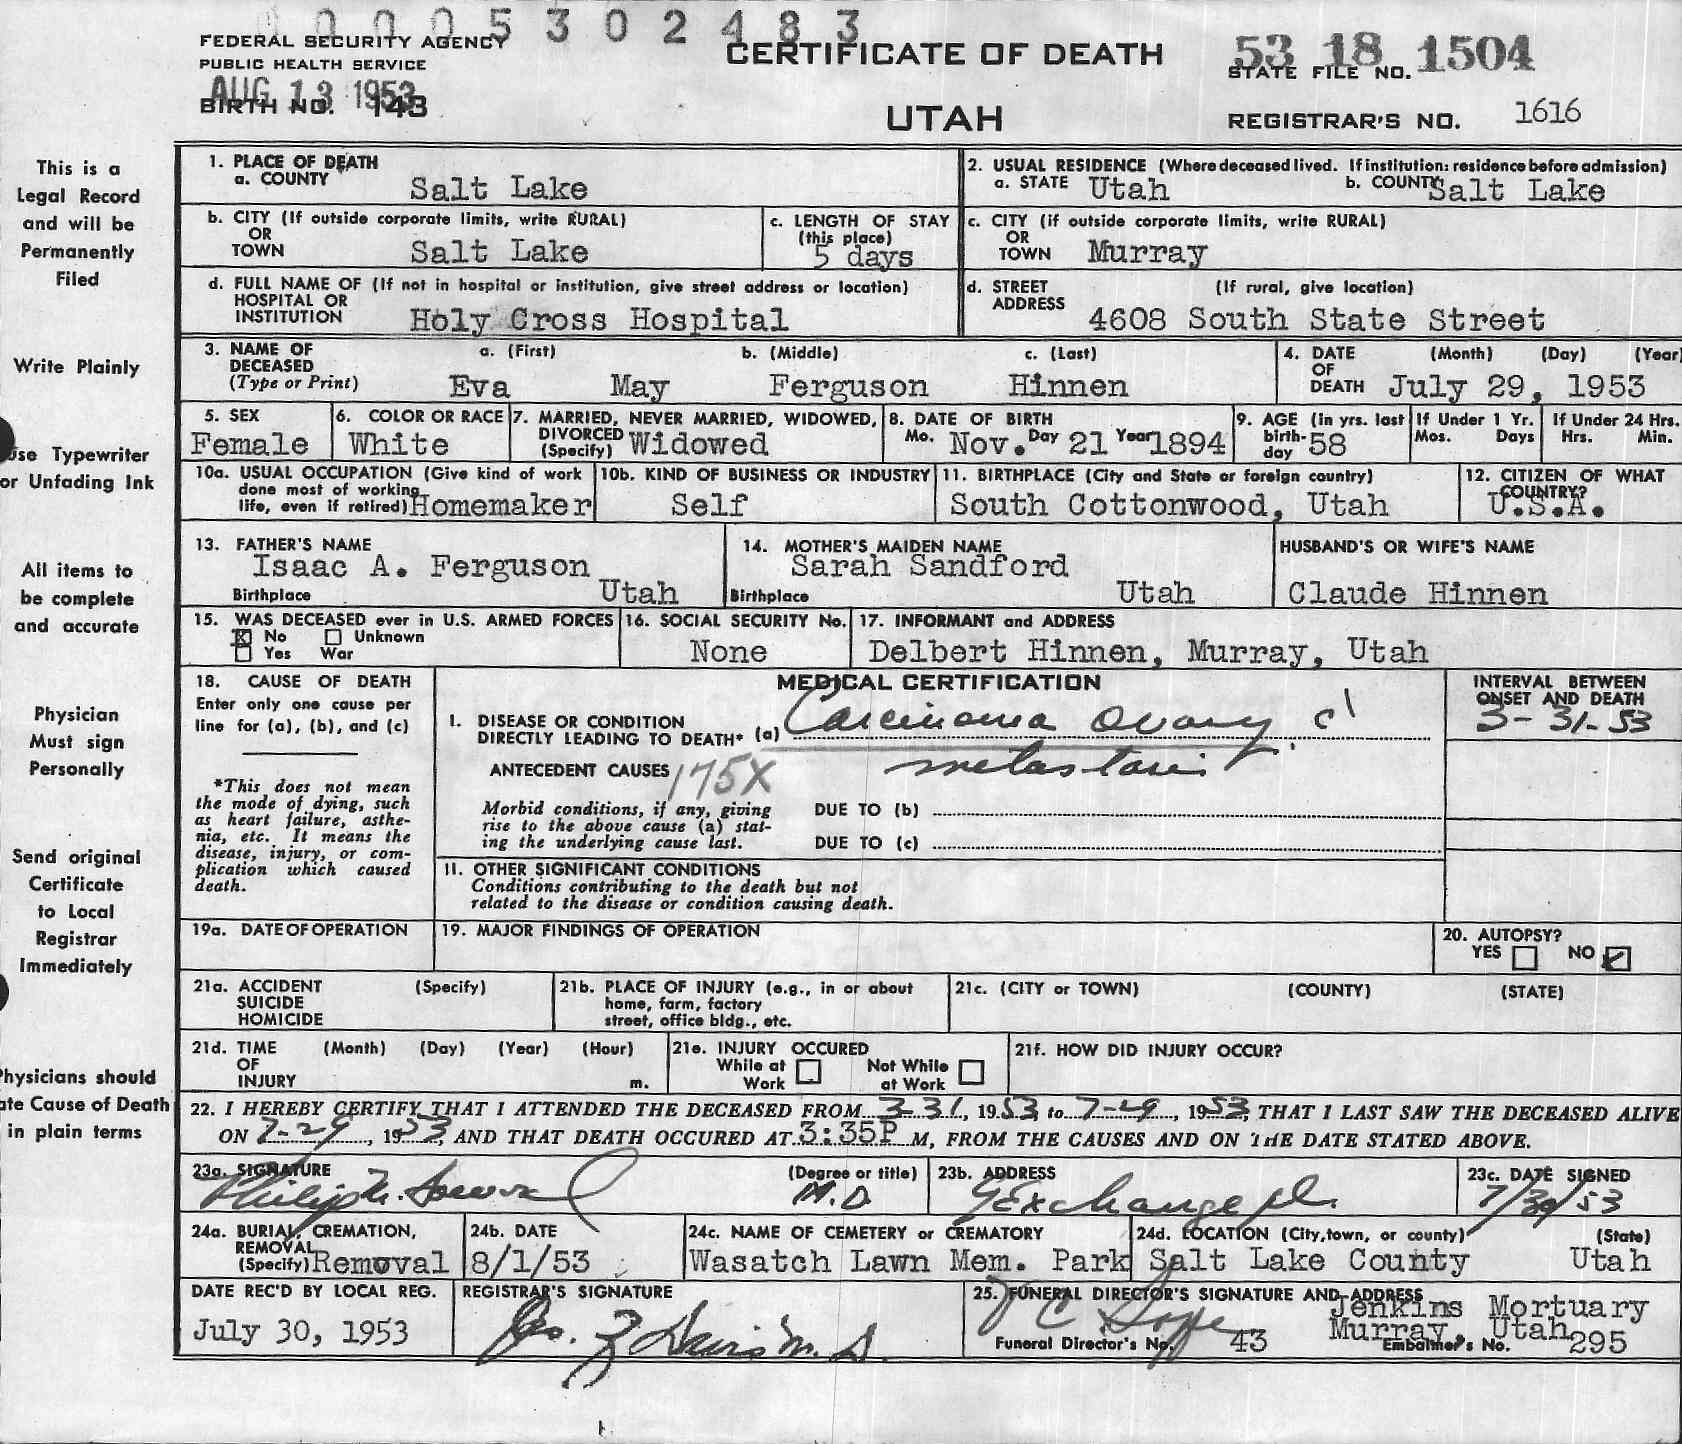 0005302483
FEDERAL SECURITY AGENCY
PUBLIC HEALTH SERVICE
AUG 13 1953
BIRTH NO. 143
CERTIFICATE OF DEATH
UTAH
53 18 1504
STATE FILE NO.
REGISTRAR'S NO. 1616
This is a
Legal Record
and will be
Permanently
Filed
Write Plainly
Use Typewriter
or Unfading Ink
All items to
be complete
and accurate
Physician
Must sign
Personally
Send original
Certificate
to Local
Registrar
Immediately
Physicians should
ate Cause of Death
in plain terms
1. PLACE OF DEATH
a. COUNTY Salt Lake
2. USUAL RESIDENCE (Where deceased lived. If institution: residence before admission)
a. STATE Utah b. COUNTY Salt Lake
b. CITY (If outside corporate limits, write RURAL)
OR
TOWN Salt Lake
c. LENGTH OF STAY
(this place)
5 days
c. CITY (if outside corporate limits, write RURAL)
OR
TOWN Murray
d. FULL NAME OF (If not in hospital or institution, give street address or location)
HOSPITAL OR
INSTITUTION Holy Cross Hospital
d. STREET (If rural, give location)
ADDRESS
4608 South State Street
3. NAME OF a. (First) b. (Middle) c. (Last)
DECEASED
(Type or Print) Eva May Ferguson Hinnen
4. DATE (Month) (Day) (Year)
OF
DEATH July 29, 1953
5. SEX
Female
6. COLOR OR RACE
White
7. MARRIED, NEVER MARRIED, WIDOWED,
DIVORCED
(Specify) Widowed
8. DATE OF BIRTH
Mo. Nov. Day 21 Year 1894
9. AGE (in yrs. last
birth-
day 58
If Under 1 Yr.
Mos. Days
If Under 24 Hrs.
Hrs. Min.
10a. USUAL OCCUPATION (Give kind of work
done most of working
life, even if retired) Homemaker
10b. KIND OF BUSINESS OR INDUSTRY
Self
11. BIRTHPLACE (City and State or foreign country)
South Cottonwood, Utah
12. CITIZEN OF WHAT
COUNTRY?
U.S.A.
13. FATHER'S NAME
Isaac A. Ferguson
Birthplace Utah
14. MOTHER'S MAIDEN NAME
Sarah Sandford
Birthplace Utah
HUSBAND'S OR WIFE'S NAME
Claude Hinnen
15. WAS DECEASED ever in U.S. ARMED FORCES
No Unknown
Yes War
16. SOCIAL SECURITY No.
None
17. INFORMANT and ADDRESS
Delbert Hinnen, Murray, Utah
18. CAUSE OF DEATH
Enter only one cause per
line for (a), (b), and (c)
*This does not mean
the mode of dying, such
as heart failure, asthe-
nia, etc. It means the
disease, injury, or com-
plication which caused
death.
MEDICAL CERTIFICATION
I. DISEASE OR CONDITION
DIRECTLY LEADING TO DEATH* (a) Carcinoma Ovary c
metastasis
ANTECEDENT CAUSES 175X
Morbid conditions, if any, giving
rise to the above cause (a) stat-
ing the underlying cause last.
DUE TO (b)
DUE TO (c)
INTERVAL BETWEEN
ONSET AND DEATH
3-31-53
II. OTHER SIGNIFICANT CONDITIONS
Conditions contributing to the death but not
related to the disease or condition causing death.
19a. DATE OF OPERATION
19. MAJOR FINDINGS OF OPERATION
20. AUTOPSY?
YES NO
21a. ACCIDENT (Specify)
SUICIDE
HOMICIDE
21b. PLACE OF INJURY (e.g., in or about
home, farm, factory
street, office bldg., etc.
21c. (CITY or TOWN) (COUNTY) (STATE)
21d. TIME (Month) (Day) (Year) (Hour)
OF
INJURY m.
21e. INJURY OCCURED
While at Work Not While at Work
21f. HOW DID INJURY OCCUR?
22. I HEREBY CERTIFY THAT I ATTENDED THE DECEASED FROM 3-31, 1953, to 7-29, 1953, THAT I LAST SAW THE DECEASED ALIVE
ON 7-29, 1953, AND THAT DEATH OCCURED AT 3:35P M, FROM THE CAUSES AND ON THE DATE STATED ABOVE.
23a. SIGNATURE (Degree or title)
Philip M. M.D.
23b. ADDRESS
9 Exchange pl.
23c. DATE SIGNED
7/30/53
24a. BURIAL, CREMATION,
REMOVAL
(Specify) Removal
24b. DATE
8/1/53
24c. NAME OF CEMETERY or CREMATORY
Wasatch Lawn Mem. Park
24d. LOCATION (City, town, or county) (State)
Salt Lake County Utah
DATE REC'D BY LOCAL REG.
July 30, 1953
REGISTRAR'S SIGNATURE
Davis M.D.
25. FUNERAL DIRECTOR'S SIGNATURE AND ADDRESS
Jenkins Mortuary
Murray, Utah
Funeral Director's No. 43 Embalmer's No. 295